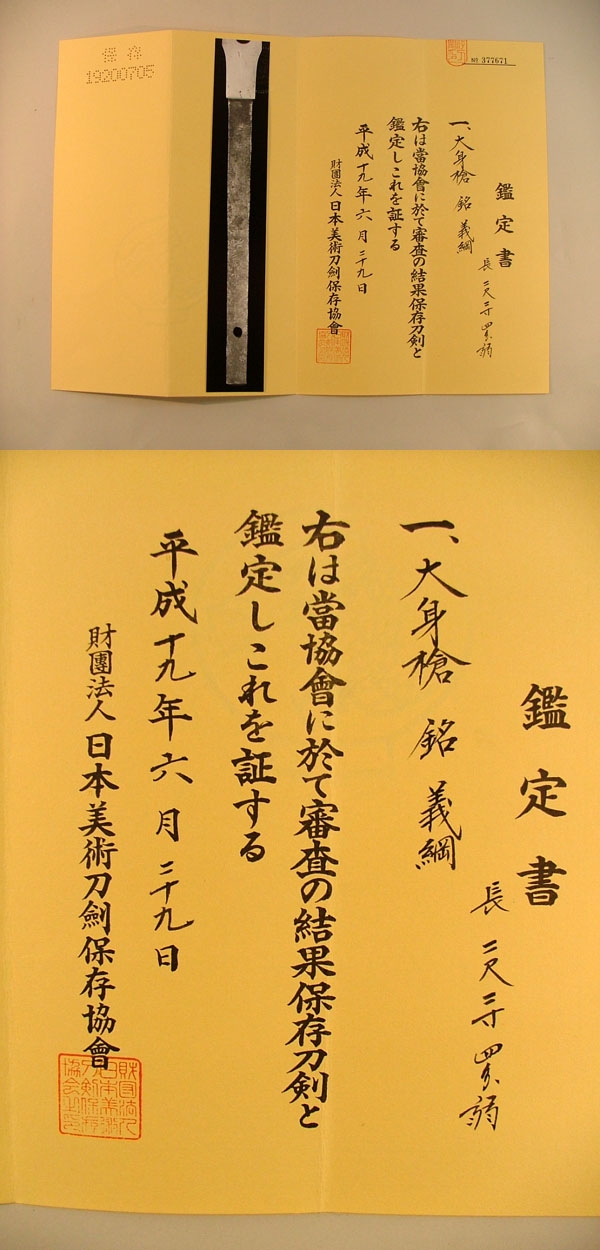 保存
19200705
No 377671
鑑定書
一、大身槍 銘 義綱
長 二尺三寸四分弱
右は當協會に於て審査の結果保存刀剣と
鑑定しこれを証する
平成十九年六月二十九日
財團法人日本美術刀劍保存協會
鑑定書
一、大身槍 銘 義綱
長 二尺三寸四分弱
右は當協會に於て審査の結果保存刀剣と
鑑定しこれを証する
平成十九年六月二十九日
財團法人日本美術刀劍保存協會